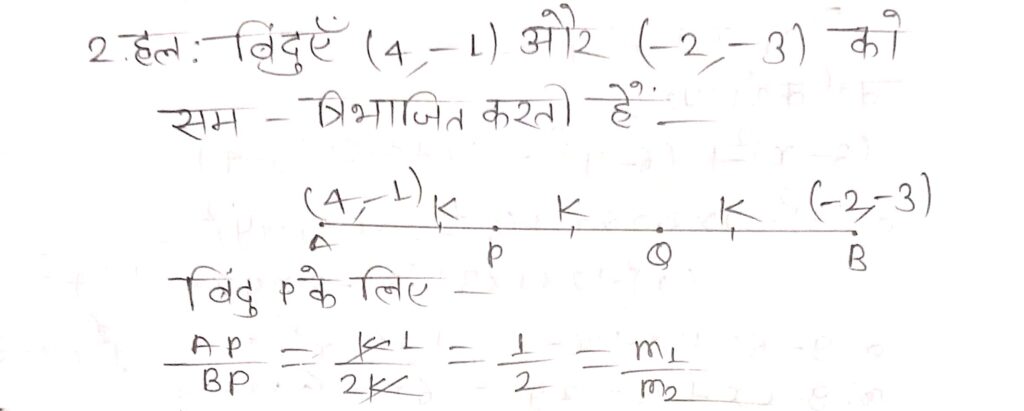 2. हल: बिंदुएँ (4,-1) और (-2,-3) को
सम - त्रिभाजित करती हैं: —
(4,-1) K K K (-2,-3)
A P Q B
बिंदु P के लिए —
AP/BP = K 1/2K = 1/2 = m1/m2